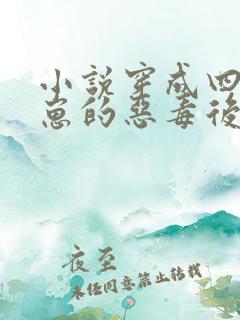 小說穿成四
崽的惡毒後
夜至
未经同意禁止转载